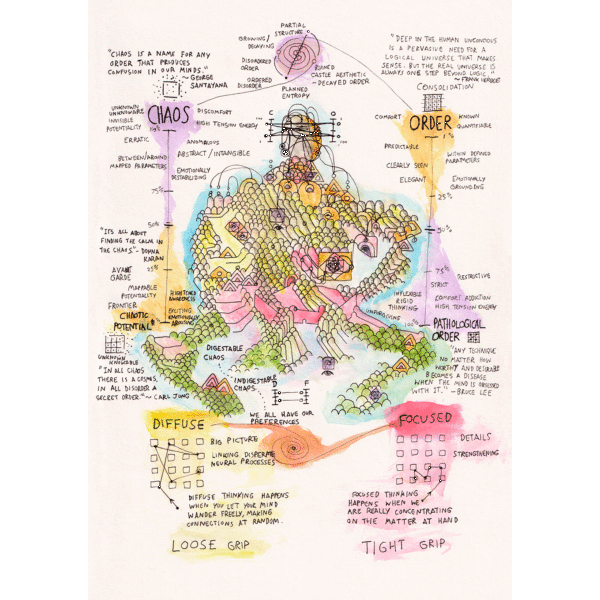 PARTIAL
STRUCTURE
GROWING/
DECAYING
DISORDERED
ORDER
ORDERED
DISORDER
PLANNED
ENTROPY
RUINED
CASTLE AESTHETIC
~ DECAYED ORDER
"CHAOS IS A NAME FOR ANY
ORDER THAT PRODUCES
CONFUSION IN OUR MINDS."
~ GEORGE
SANTAYANA
"DEEP IN THE HUMAN UNCONSCIOUS
IS A PERVASIVE NEED FOR A
LOGICAL UNIVERSE THAT MAKES
SENSE. BUT THE REAL UNIVERSE IS
ALWAYS ONE STEP BEYOND LOGIC."
~ FRANK HERBERT
CONSOLIDATION
UNKNOWN
UNKNOWABLE
INVISIBLE
POTENTIALITY
CHAOS
DISCOMFORT
HIGH TENSION ENERGY
ERRATIC
ANOMALOUS
ABSTRACT / INTANGIBLE
BETWEEN/AROUND
MAPPED PARAMETERS
EMOTIONALLY
DESTABILIZING
75%
50%
"IT'S ALL ABOUT
FINDING THE CALM IN
THE CHAOS."~ DONNA
KARAN
25%
AVANT
GARDE
MAPPABLE
POTENTIALITY
HEIGHTENED
AWARENESS
FRONTIER
EXCITING
EMOTIONALLY
AROUSING
CHAOTIC
POTENTIAL
C
O
COMFORT
ORDER
KNOWN
QUANTIFIABLE
1%
PREDICTABLE
WITHIN DEFINED
PARAMETERS
CLEARLY SEEN
ELEGANT
EMOTIONALLY
GROUNDING
25%
50%
75%
RESTRICTIVE
STRICT
INFLEXIBLE
RIGID
THINKING
COMFORT ADDICTION
HIGH TENSION ENERGY
UNFORGIVING
100%
PATHOLOGICAL
ORDER
UNKNOWN
KNOWABLE
"IN ALL CHAOS
THERE IS A COSMOS,
IN ALL DISORDER A
SECRET ORDER."~ CARL JUNG
DIGESTABLE
CHAOS
INDIGESTABLE
CHAOS
D
F
WE ALL HAVE OUR
PREFERENCES
"ANY TECHNIQUE
NO MATTER HOW
WORTHY AND DESIRABLE
BECOMES A DISEASE
WHEN THE MIND IS OBSESSED
WITH IT." ~ BRUCE LEE
DIFFUSE
BIG PICTURE
LINKING DISPERATE
NEURAL PROCESSES
DIFFUSE THINKING HAPPENS
WHEN YOU LET YOUR MIND
WANDER FREELY, MAKING
CONNECTIONS AT RANDOM.
LOOSE GRIP
FOCUSED
DETAILS
STRENGTHENING
FOCUSED THINKING
HAPPENS WHEN WE
ARE REALLY CONCENTRATING
ON THE MATTER AT HAND
TIGHT GRIP